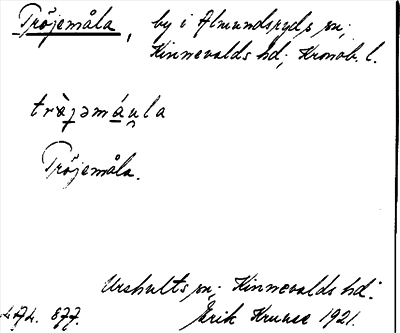 Tröjemåla, by i Almundsryds sn;
Kinnevalds hd; Kronob. l.
tràʝəmáu̯la
Tröjemåla.
Urshults sn; Kinnevalds hd.
Erik Kruuse 1921.